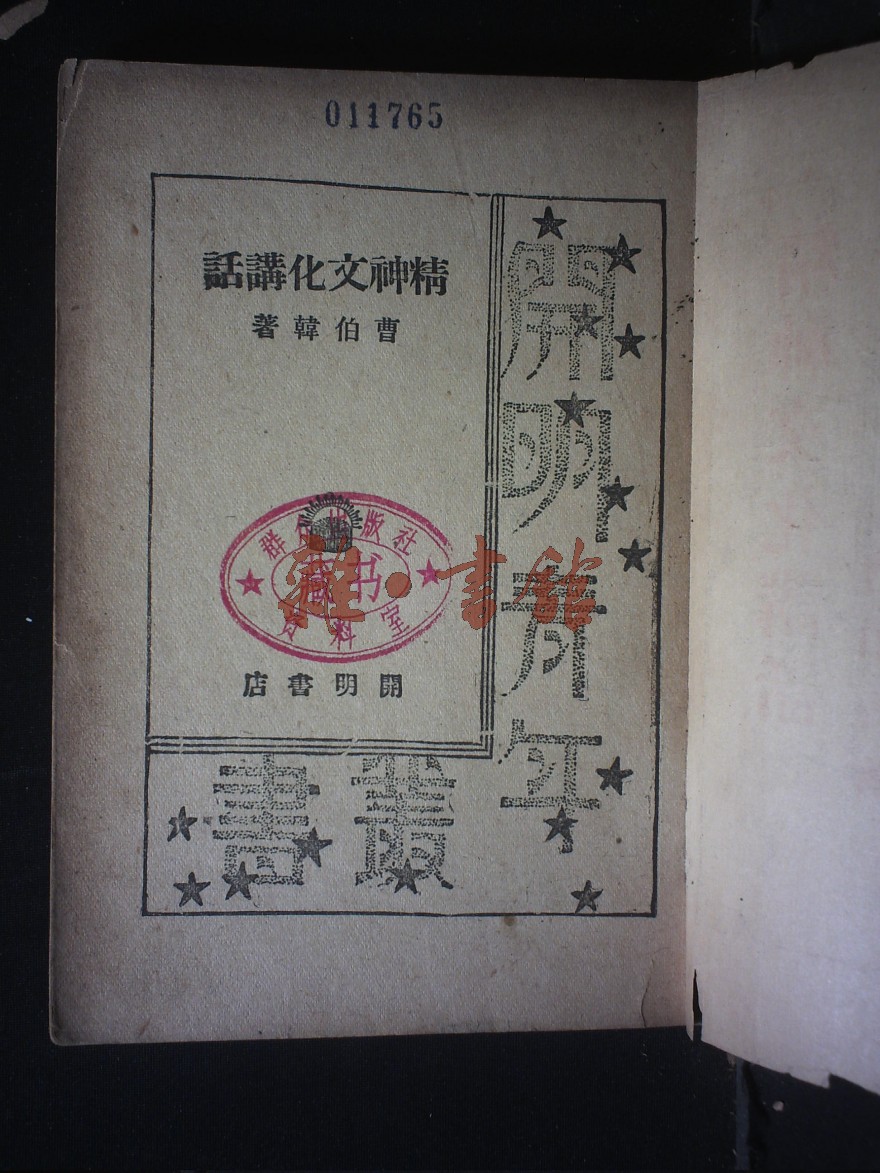 011765
精神文化講話
曹伯韓著
開明青年
叢書
群众出版社
藏书
资料室
雜·書館
開明書店